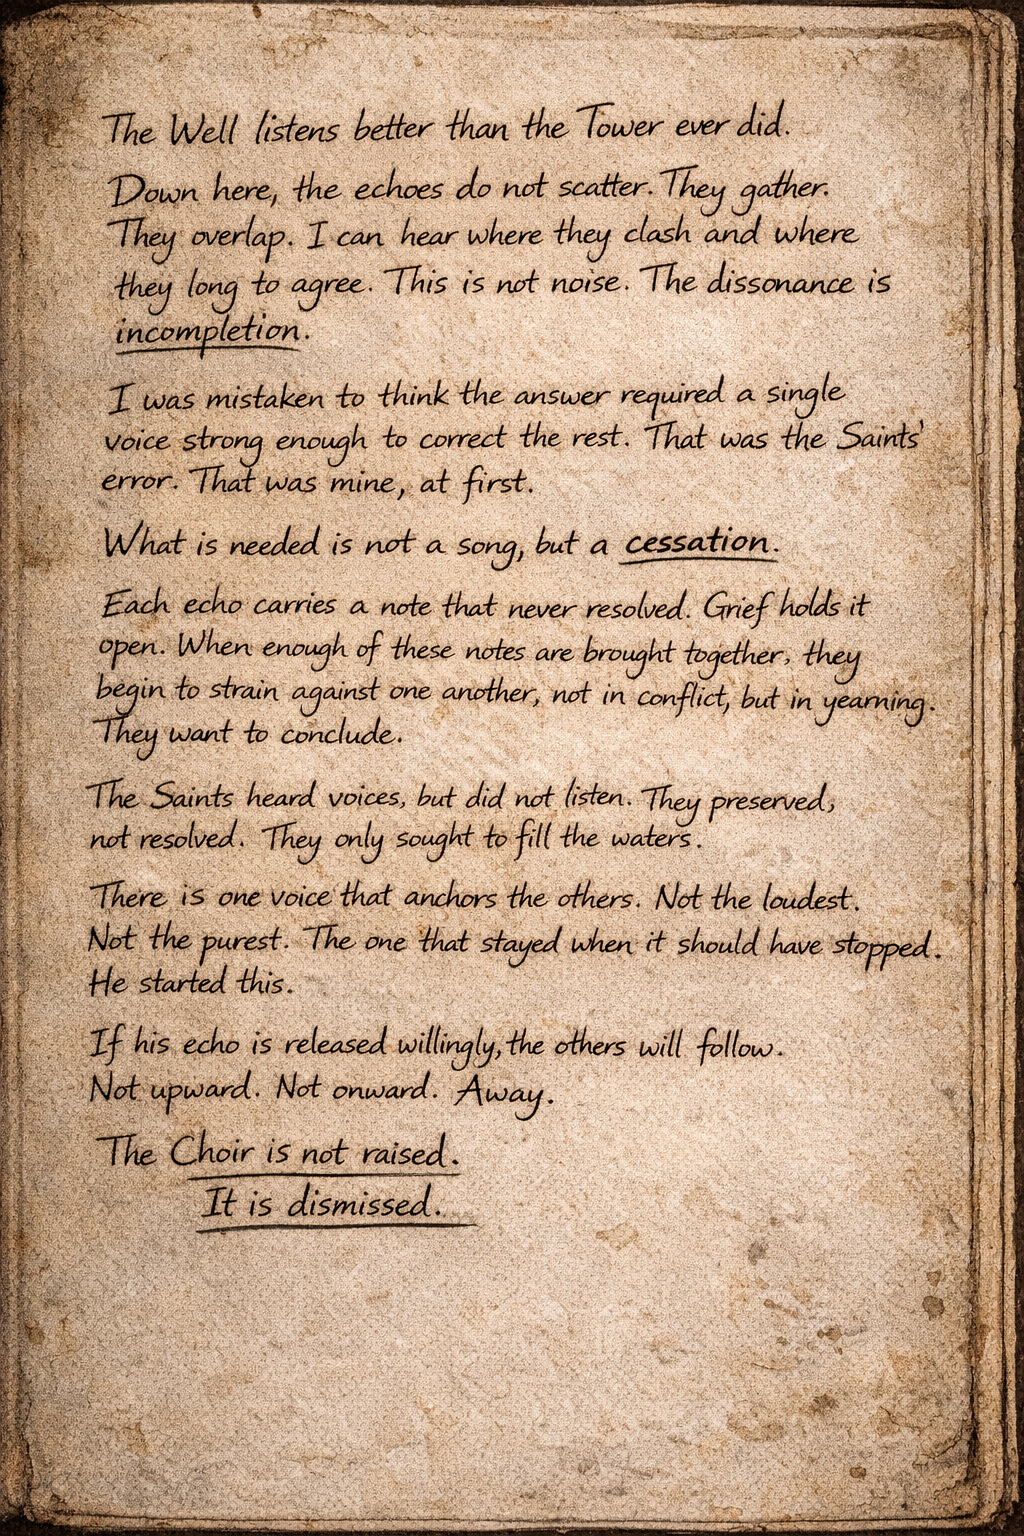 The Well listens better than the Tower ever did.
Down here, the echoes do not scatter. They gather.
They overlap. I can hear where they clash and where
they long to agree. This is not noise. The dissonance is
incompletion.
I was mistaken to think the answer required a single
voice strong enough to correct the rest. That was the Saints'
error. That was mine, at first.
What is needed is not a song, but a cessation.
Each echo carries a note that never resolved. Grief holds it
open. When enough of these notes are brought together, they
begin to strain against one another, not in conflict, but in yearning.
They want to conclude.
The Saints heard voices, but did not listen. They preserved,
not resolved. They only sought to fill the waters.
There is one voice that anchors the others. Not the loudest.
Not the purest. The one that stayed when it should have stopped.
He started this.
If his echo is released willingly, the others will follow.
Not upward. Not onward. Away.
The Choir is not raised.
It is dismissed.